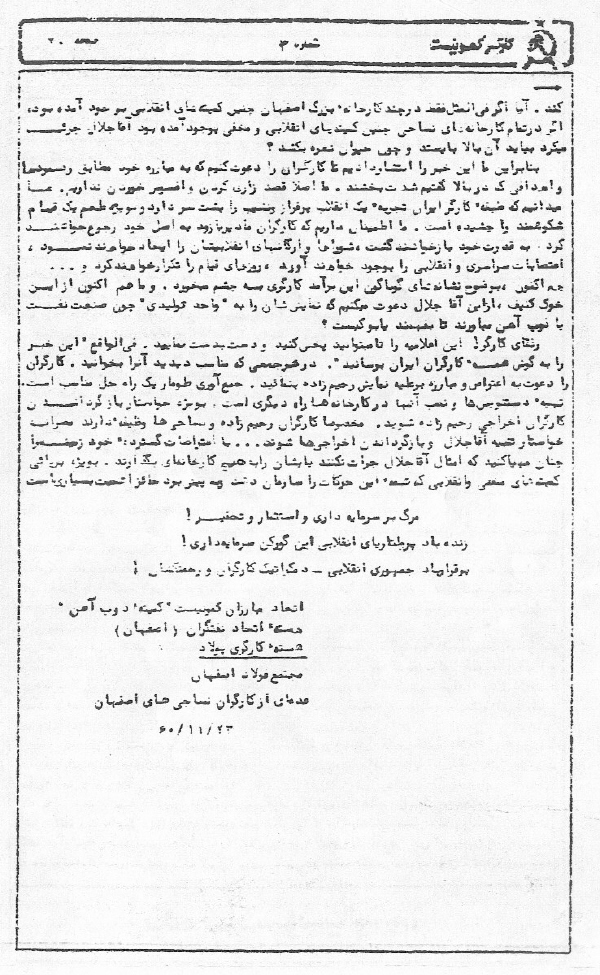 کارگر کمونیست شماره ۳ صفحه ۲۰
کند . آیا اگر فی‌المثل فقط در چند کارخانه بزرگ اصفهان چنین کمیته‌های انقلابی بوجود آمده بود،
اگر در تمام کارخانه‌های نساجی چنین کمیته‌های انقلابی و مخفی بوجود آمده بود آقا جلال جرئت
میکرد بیاید آن بالا بایستد و چون حیوان نعره بکشد ؟
بنابراین ما این خبر را انتشار دادیم تا کارگران را دعوت کنیم که به مبارزه خود مطابق رهنمودها
و اهدافی که در بالا گفتیم شدت بخشند . ما اصلا قصد زاری کردن و افسوس خوردن نداریم . ما
میدانیم که طبقه کارگر ایران تجربه یک انقلاب را پشت سر دارد و طعم یک قیام
شکوهمند را چشیده است . ما اطمینان داریم که کارگران ما دیر یا زود به اصل خود رجوع خواهند
کرد . به قدرت خود باز خواهند گشت ، شوراها و ارگانهای انقلابیشان را ایجاد خواهند نمود ،
اعتصابات سراسری و انقلابی را بوجود خواهند آورد ، روزهای قیام را تکرار خواهند کرد و ...
هم اکنون ، بوضوح نشانه‌های گوناگون این برآمد کارگری به چشم میخورد . و ما هم اکنون از این
خوک کثیف ، از این آقا جلال دعوت میکنیم که نمایش‌شان را به " واحد تولیدی " چون صنعت نفت
یا ذوب آهن بیاورند تا بفهمند یابو کیست ؟
رفقای کارگر! این اعلامیه را تا میتوانید پخش کنید و دست بدست نمایید . فی‌الواقع " این خبر
را به گوش همه کارگران ایران برسانید ". در هر جمعی که مناسب دیدید آنرا بخوانید . کارگران
را دعوت به اعتراض و مبارزه بر علیه نمایش رحیم زاده بنمائید . جمع‌آوری طومار یک راه حل مناسب است.
تهیه دستنویس‌ها و نصب آنها در کارخانه‌ها راه دیگری است . بویژه خواستار بازگرداندن
کارگران اخراجی رحیم زاده شوید . مخصوصا کارگران رحیم زاده و نساجی‌ها وظیفه دارند
خواستار آقا جلال و بازگرداندن اخراجی‌ها شوند ... با اعتراضات گسترده خود زمینه را
چنان مهیا کنید که امثال آقا جلال جرات نکنند پایشان را به هیچ کارخانه‌ای بگذارند . بویژه برپائی
کمیته‌های مخفی و انقلابی که این حرکات را سازمان دهند و به پیش برد حائز اهمیت بسیاری است
مرگ بر سرمایه داری و استثمار و تحقیر !
زنده باد پرولتاریای انقلابی این گورکن سرمایه‌داری !
برقرار باد جمهوری انقلابی ـ دمکراتیک کارگران و زحمتکشان !
اتحاد مبارزان کمونیست " کمیته ذوب آهن "
هسته اتحاد نفتگران ( اصفهان )
هسته کارگری پولاد
مجتمع فولاد اصفهان
عده‌ای از کارگران نساجی های اصفهان
۶۰/۱۱/۲۳